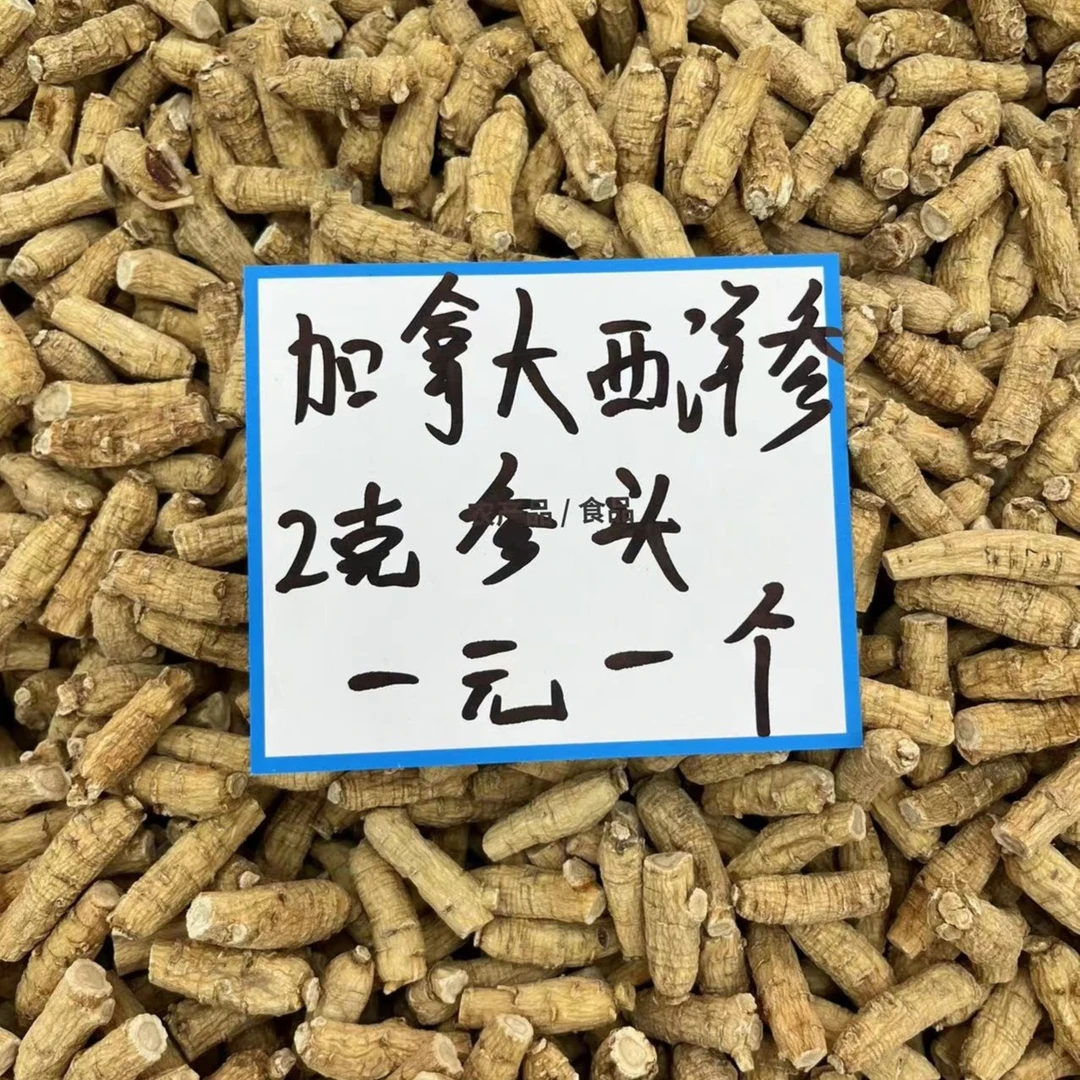 加拿大西洋参
农产品 / 食品
2克参头
一元一个